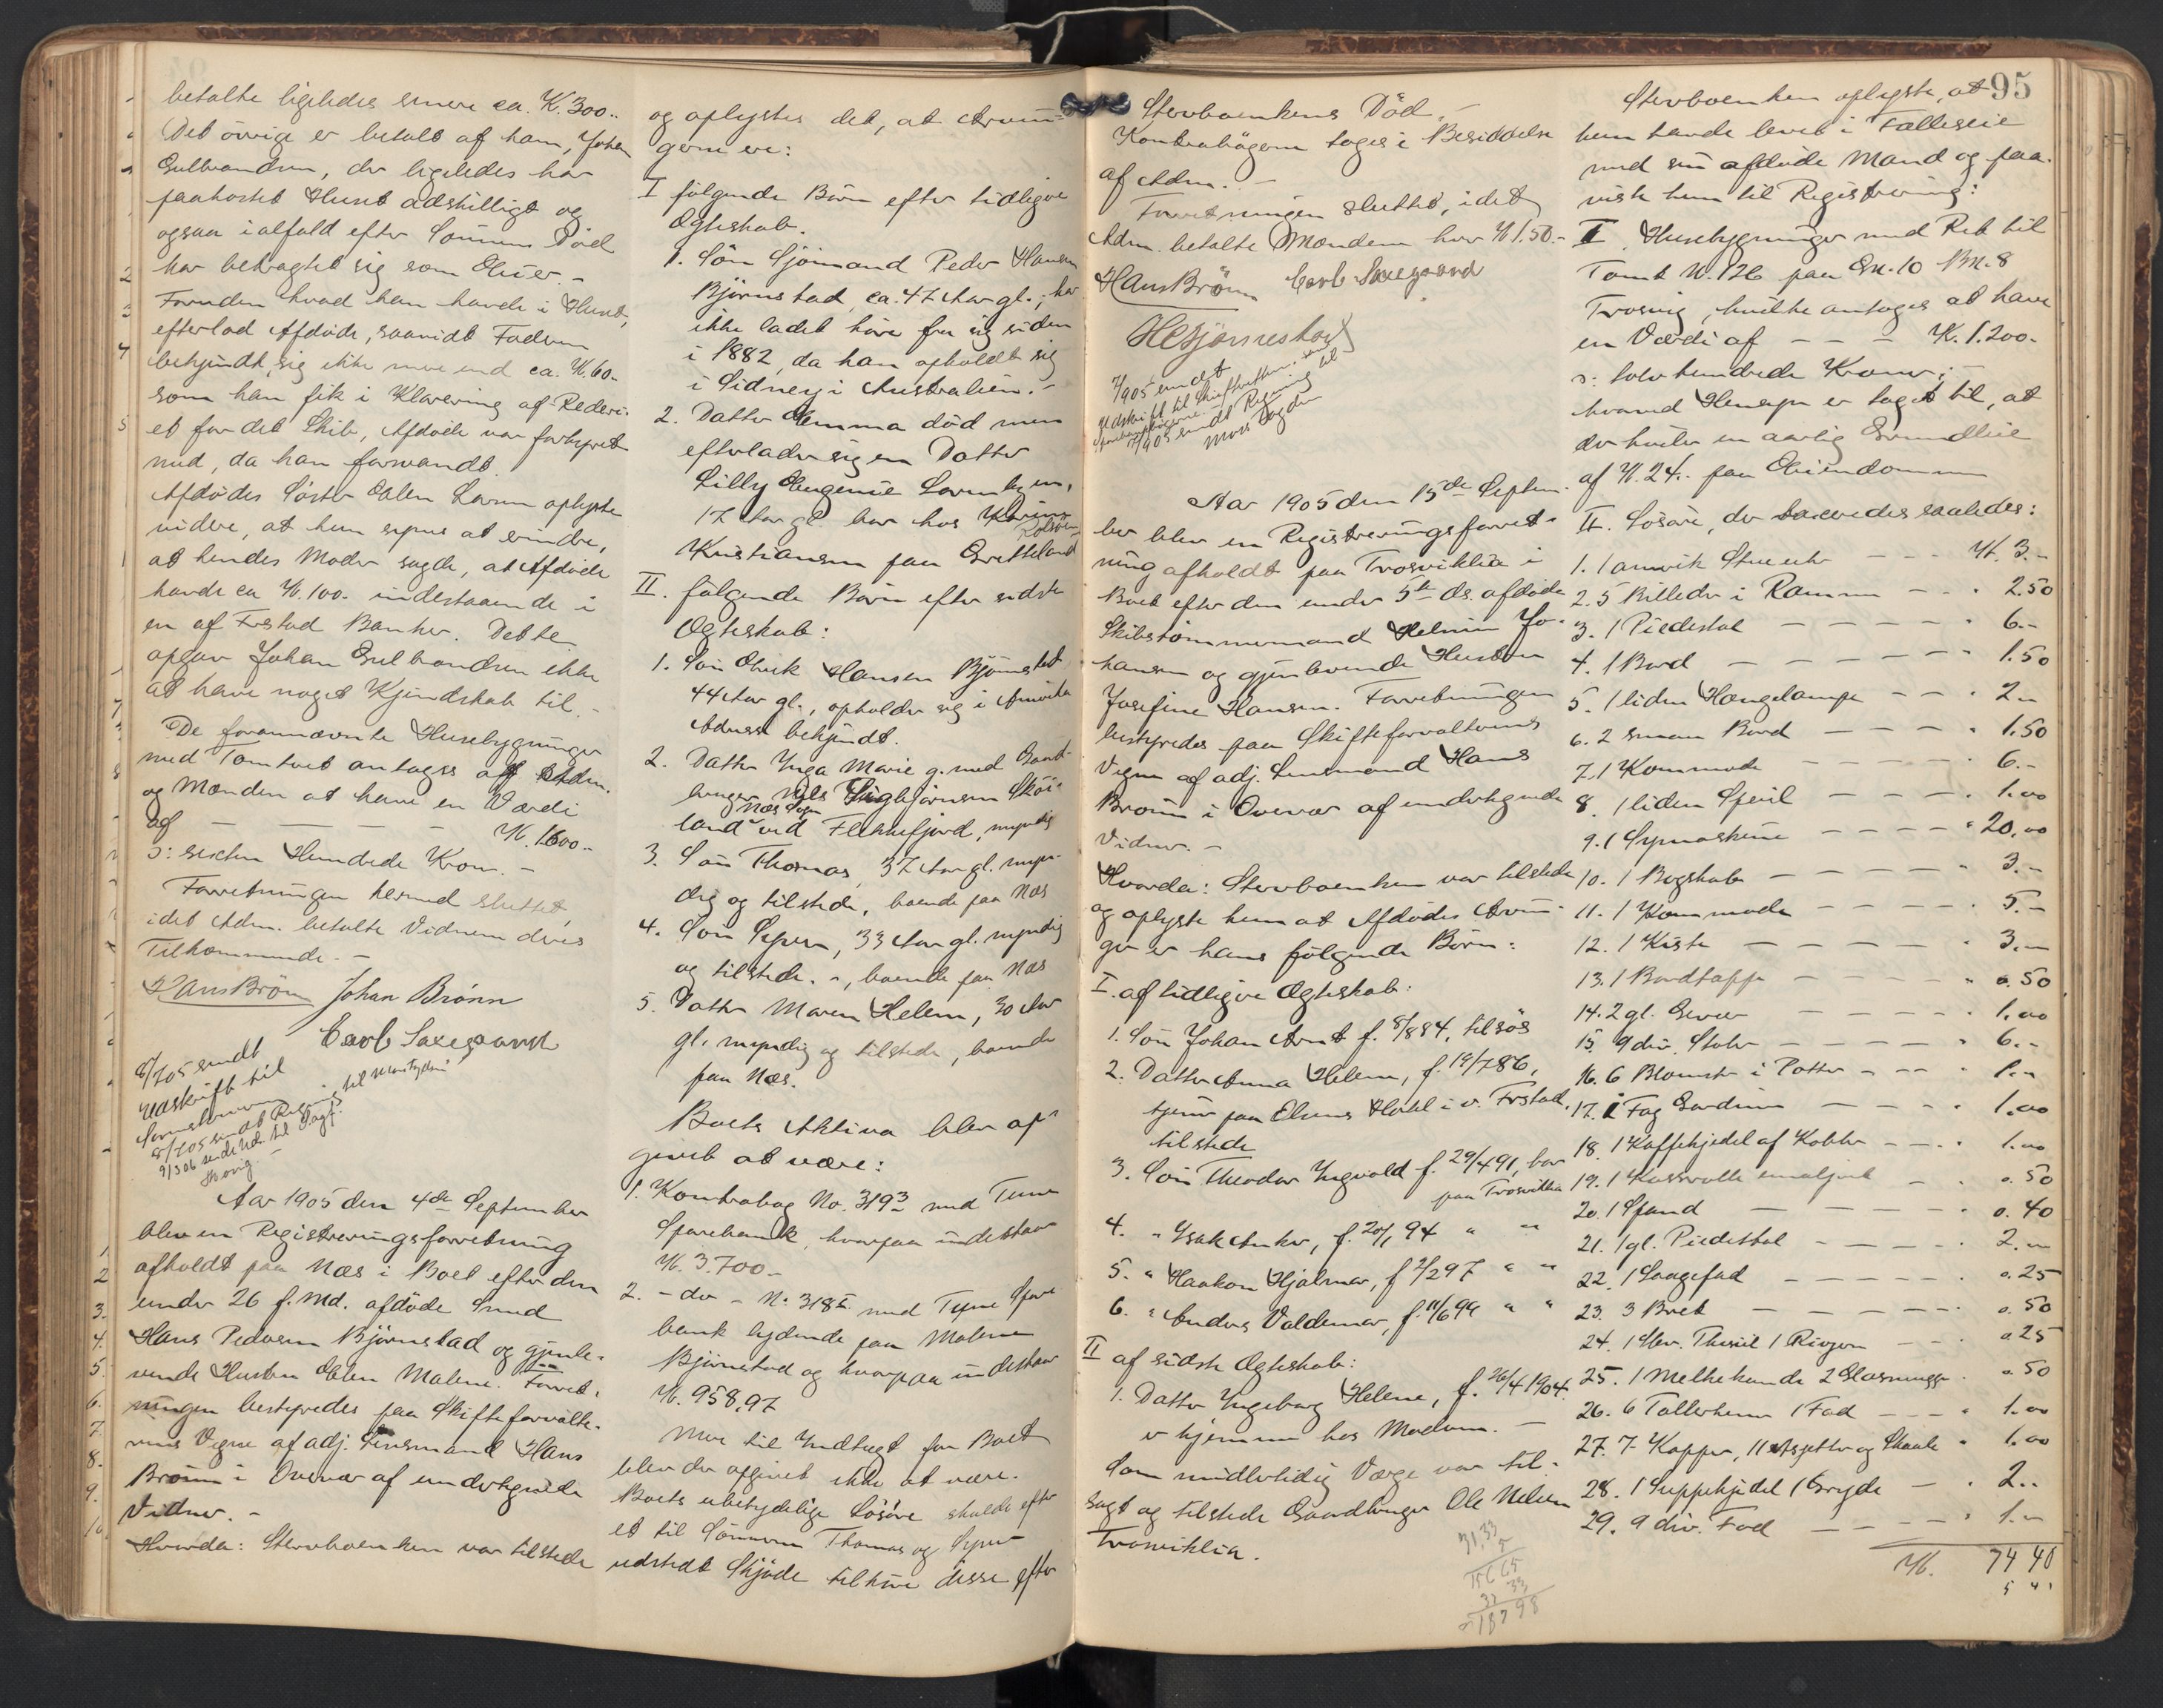 betalte ligeledes senere ca. K. 300..
Det øvrige er betalt af ham, Johan
Gulbrandsen, der ligeledes har
paakostet Huset adskilligt og
ogsaa i alfald efter Sønnens Død
har betragtet sig som Eier. -
Foruden hvad han havde i Huset,
efterlod Afdøde, saavidt Faderen
bekjendt, sig ikke mere end ca. K. 60.-
som han fik i Klarering af Rederi-
et for det Skib, Afdøde var forhyret
med, da han forsvandt.
Afdødes Søster Elen Larsen oplyste
videre, at hun synes at erindre,
at hendes Moder sagde, at Afdøde
havde ca K. 100.- indestaaende i
en af Frstad Banker. Dette
opgav Johan Gulbrandsen ikke
at have noget Kjendskab til. -
De forannævnte Husebygninger
med Tomtret antages af Adm.
og Mænden at have en Værdi
af — — — — K. 1600..
ɔ: sexten Hundrede Kron. -
Forretningen hermed sluttet,
idet Adm. betalte Vidnerne deres
Tilkommende. -
Hans Brønn Johan Brönn
Carl Saxegaard
8/705 sendt
Udskrift til
8/705 sendt Regning til
9/306
Aar 1905 den 4de September
blev en Registreringsforretning
afholdt paa Næs i Boet efter den
under 26 f. Md. afdøde Smed
Hans Pedersen Björnstad og gjenle-
vende Hustru Elen Malene. Forret-
ningen bestyredes paa Skifteforvalte-
rens Vegne af adj. Lensmand Hans
Brønn i Overvær af undertegnede
Vidner. -
Hvorda: Stervboenken var tilstede
og oplystes det, at Arvin-
gerne ere:
I følgende Børn efter tidligere
Ægteskab.
1. Søn Sjömand Peder Hansen
Björnstad, ca. 47 Aar gl.; har
ikke ladet høre fra sig siden
i 1882, da han opholdt sig
i Sidney i Australien. -
2. Datter Emma død men
efterlader sig en Datter
Lilly Eugenie
17 Aar gl. bor hos
Kristiansen paa
II. følgende Børn efter sidste
Ægteskab:
1. Søn Erik Hansen Björnstad
44 Aar gl., opholder sig i Amerika
Adresse bekjendt.
2. Datter Inga Marie g. med Gaard-
bruger Nils Sigbjörnsen
Næs Sogn
land ved Flekkefjord, myndig
3. Søn Thomas, 37 Aar gl. myn-
dig og tilstede, boende paa Næs
4. Søn Syver, 33 Aar gl. myndig
og tilstede. -, boende paa Næs
5. Datter Maren Helene, 30 Aar
gl. myndig og tilstede, boende
paa Næs.
Boets Aktiva blev op-
givet at være:
1. Kontrabog No. 319 3 med Tune
Sparebank, hvorpaa indestaar
K. 3.700.-
2. - do - No. 318 I. med Tune Spare
bank lydende paa Malene
Björnstad og hvorpaa indestaar
K. 958,97
Mere til Indtægt for Boet
blev der opgivet ikke at være.
Boets ubetydelige Løsøre skulde efter
et til Sønnerne Thomas og Syver
udstedt Skjøde tilhøre disse efter
95
Stervboenkens Død. -
Kontrabøgerne toges i Besiddelse
af Adm. -
Forretningen sluttet, idet
Adm. betalte Mændene hver K 1.50.-
Hans Brönn Carl Saxegaard
7/905 sendt
Udskrift til Skifteretten
7/905 sendt Regning til
Moss Sogden
Aar 1905 den 15de Septem-
ber blev en Registreringsforret-
ning afholdt paa Trosviklia i
Boet efter den under 5te ds. afdøde
Skibstømmermand Helmin Jo-
hansen og gjenlevende Hustru
Josefine Hansen. Forretningen
bestyredes paa Skifteforvalterens
Vegne af adj. Lensmand Hans
Brønn i Overvær af undertegnede
Vidner. -
Hvorda: Stervboenken var tilstede
og oplyste hun at Afdødes Arvin-
ger er hans følgende Børn:
I. af tidligere Ægteskab:
1. Søn Johan Arnt f. 8/884, tilsøs
2. Datter Anna Helene, f. 19/786,
tjener paa Elsens Hotel i v. Frstad,
tilstede
3. Søn Theodor Ingvald f. 29/491, bor
paa Trosviklia
4. " Isak Anker, f. 20/1 94 " "
5. " Haakon Hjalmar, f 2/297 " "
6. " Anders Valdemar, f. 11/699 " "
II af sidste Ægteskab:
1. Datter Ingeborg Helene, f. 26/4 1904.
er hjemme hos Moderen. -
Som midlertidig Værge var til-
sagt og tilstede Gaardbruger Ole Nilsen
Trosviklia.
31,33
5
156 65
31 33
187 98
Stervboenken oplyste, at
hun havde levet i Fælleseie
med sin afdøde Mand og paa-
viste hun til Registrering:
I. Husebygninger med Ret til
Tomt N. 126 paa Gn. 10 Bn. 8
Trosvig, hvilke antages at have
en Værdi af - - - K. 1.200.-
ɔ: tolv hundrede Kroner; -
hvorved Hensyn er taget til, at
der hviler en aarlig Grundleie
af K. 24.- paa Eiendommen
II. Løsøre, der taxeredes saaledes:
1. 1 amerik Stueuhr - - - K. 3.-
2. 5 Billeder i Ramme - - " 2.50
3. 1 Piedestal - - - - " 6.-
4. 1 Bord - - - - - " 1.50
5. 1 liden Hængelampe - - " 2.-
6. 2 smaa Bord - - - - " 1.50
7. 1 Kommode - - - - " 6.-
8. 1 liden Speil - - - - " 1.00
9. 1 Symaskine - - - - " 20.00
10. 1 Bogskab - - - - " 3.-
11. 1 Kommode - - - - " 5.-
12. 1 Kiste - - - - - " 3.-
13. 1 Bordtæppe - - - - " 0.50
14. 2 gl. Gevær - - - - " 1.00
15. 9 div. Stoler - - - - " 6.-
16. 6 Blomster i Potter - - - " 1.-
17. 1 Fag Gardiner - - - " 1.00
18. 1 Kaffekjedel af Kobber - - - " 1.00
19. 1 Kasserolle emaljert - - " 0.50
20. 1 Spand - - - - - " 0.40
21. 1 gl. Piedestal - - - - " 2.-
22. 1 Saagefad - - - - " 0.25
23. 3 Bret - - - - - " 0.50
24. 1 Thesil 1 Rivjern - - " 0.25
25. 1 Melkekande 2 Glasmugge " 0.50
26. 6 Tallerkener 1 Fad - - - " 1.00
27. 7 Kopper, 11 Asjetter og Skaale " 1.00
28. 1 Suppekjedel 1 Gryde - " 2..
29. 9 div. Fad - - - - " 1.-
K. 74 40